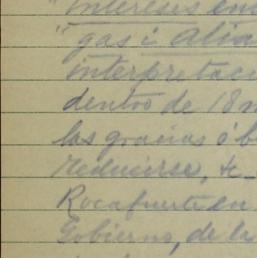 "Intereses en
"gas i Alia
interpretaci
dentro de 18 m
las gracias ó b
reducirse, &
Rocafuerte en
Gobierno, de la